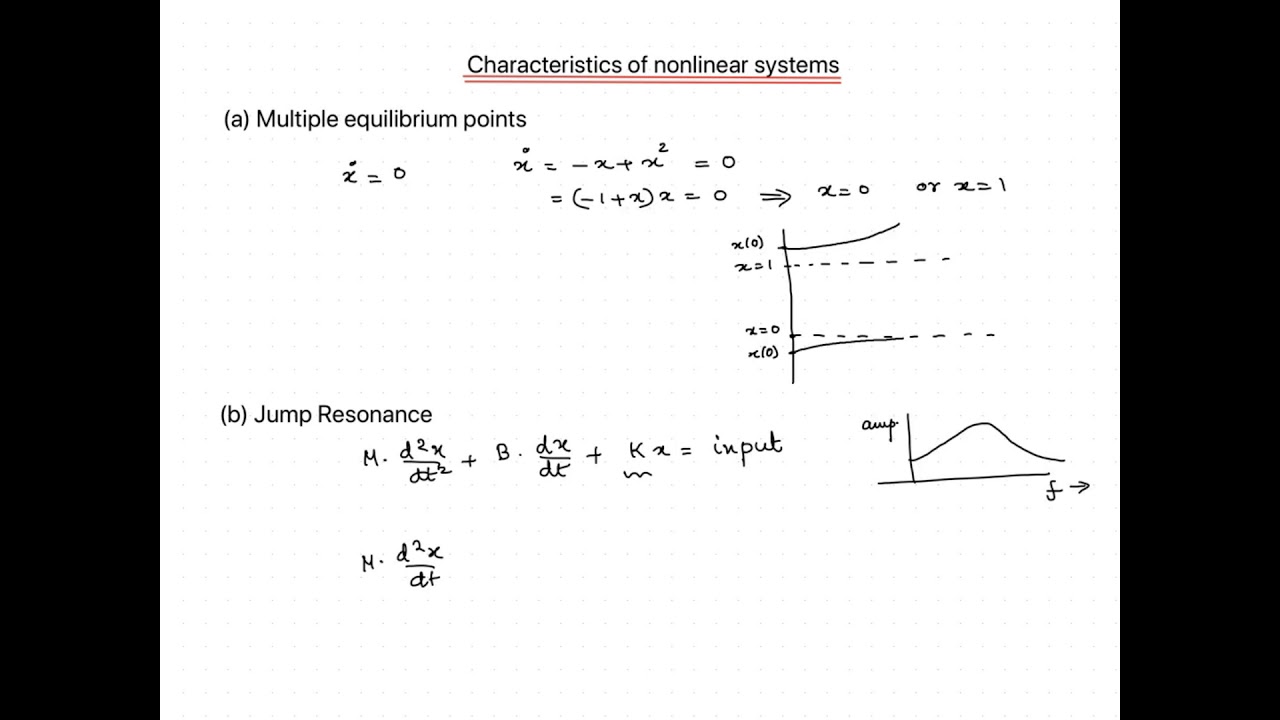 Characteristics of nonlinear systems
(a) Multiple equilibrium points
ẋ = 0
ẋ = -x + x² = 0
= (-1+x)x = 0 ⇒ x=0 or x=1
x(0)
x=1
x=0
x(0)
(b) Jump Resonance
M. d²x/dt² + B. dx/dt + Kx = input
amp.
f →
M. d²x/dt